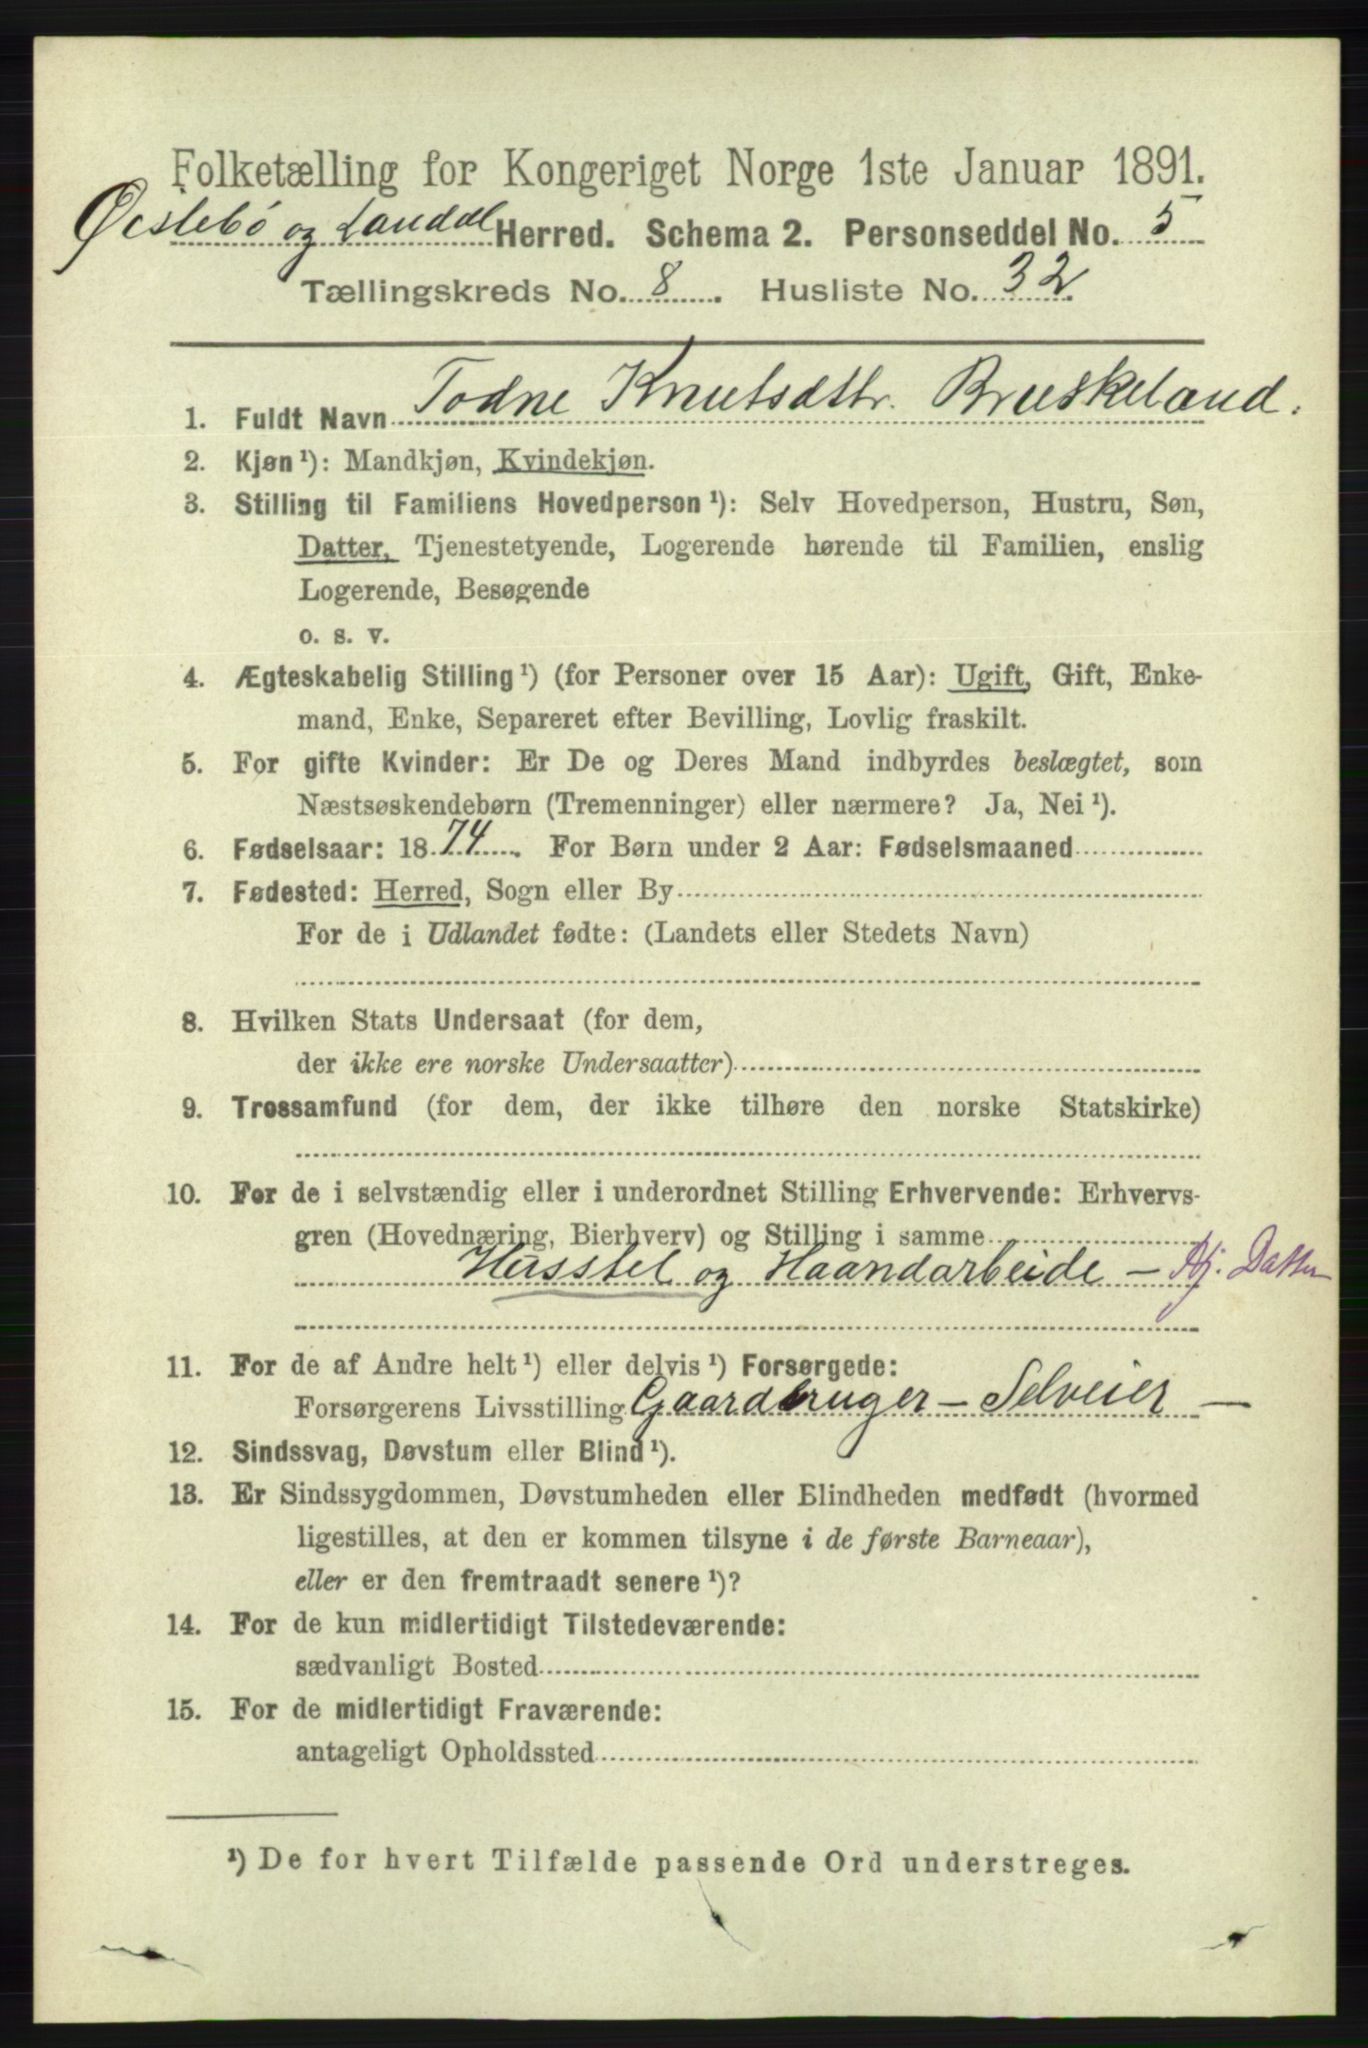 Folketælling for Kongeriget Norge 1ste Januar 1891.
Øislebø og Laudal Herred. Schema 2. Personseddel No. 5
Tællingskreds No. 8. Husliste No. 32.
1. Fuldt Navn Todne Knutsdtr. Bruskeland.
2. Kjøn ¹): Mandkjøn, Kvindekjøn.
3. Stilling til Familiens Hovedperson ¹): Selv Hovedperson, Hustru, Søn,
Datter, Tjenestetyende, Logerende hørende til Familien, enslig
Logerende, Besøgende
o. s. v.
4. Ægteskabelig Stilling ¹) (for Personer over 15 Aar): Ugift, Gift, Enke-
mand, Enke, Separeret efter Bevilling, Lovlig fraskilt.
5. For gifte Kvinder: Er De og Deres Mand indbyrdes beslægtet, som
Næstsøskendebørn (Tremenninger) eller nærmere? Ja, Nei ¹).
6. Fødselsaar: 1874. For Børn under 2 Aar: Fødselsmaaned
7. Fødested: Herred, Sogn eller By
For de i Udlandet fødte: (Landets eller Stedets Navn)
8. Hvilken Stats Undersaat (for dem,
der ikke ere norske Undersaatter)
9. Trossamfund (for dem, der ikke tilhøre den norske Statskirke)
10. For de i selvstændig eller i underordnet Stilling Erhvervende: Erhvervs-
gren (Hovednæring, Bierhverv) og Stilling i samme
Husstel og Haandarbeide – Hj. Datter
11. For de af Andre helt ¹) eller delvis ¹) Forsørgede:
Forsørgerens Livsstilling Gaardbruger – Selveier –
12. Sindssvag, Døvstum eller Blind ¹).
13. Er Sindssygdommen, Døvstumheden eller Blindheden medfødt (hvormed
ligestilles, at den er kommen tilsyne i de første Barneaar),
eller er den fremtraadt senere ¹)?
14. For de kun midlertidigt Tilstedeværende:
sædvanligt Bosted
15. For de midlertidigt Fraværende:
antageligt Opholdssted
¹) De for hvert Tilfælde passende Ord understreges.